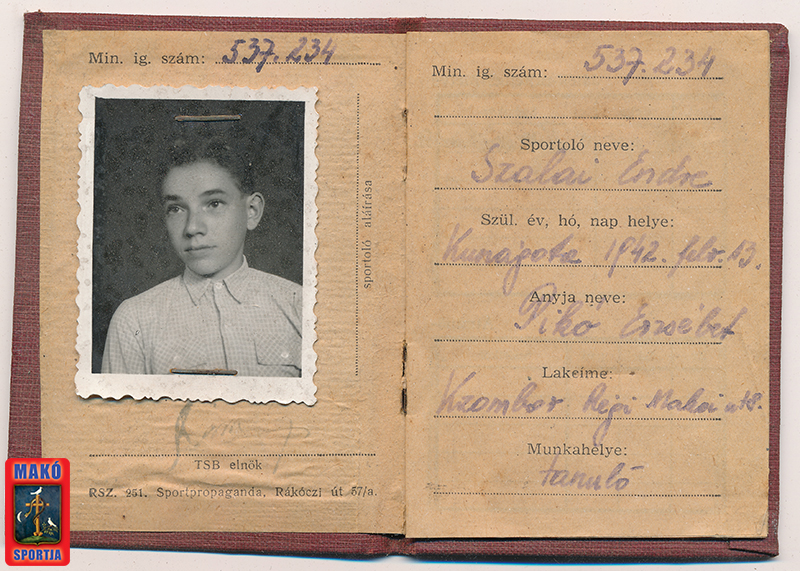 Min. ig. szám: 537.234
sportoló aláírása
TSB elnök
RSZ. 251. Sportpropaganda, Rákóczi út 57/a.
MAKÓ
SPORTJA
Min. ig. szám: 537.234
Sportoló neve:
Szalai Endre
Szül. év, hó, nap helye:
Kunágota 1942. febr. 13.
Anyja neve:
Pikó Erzsébet
Lakcíme:
Kzombor Régi Makai u.
Munkahelye:
tanuló